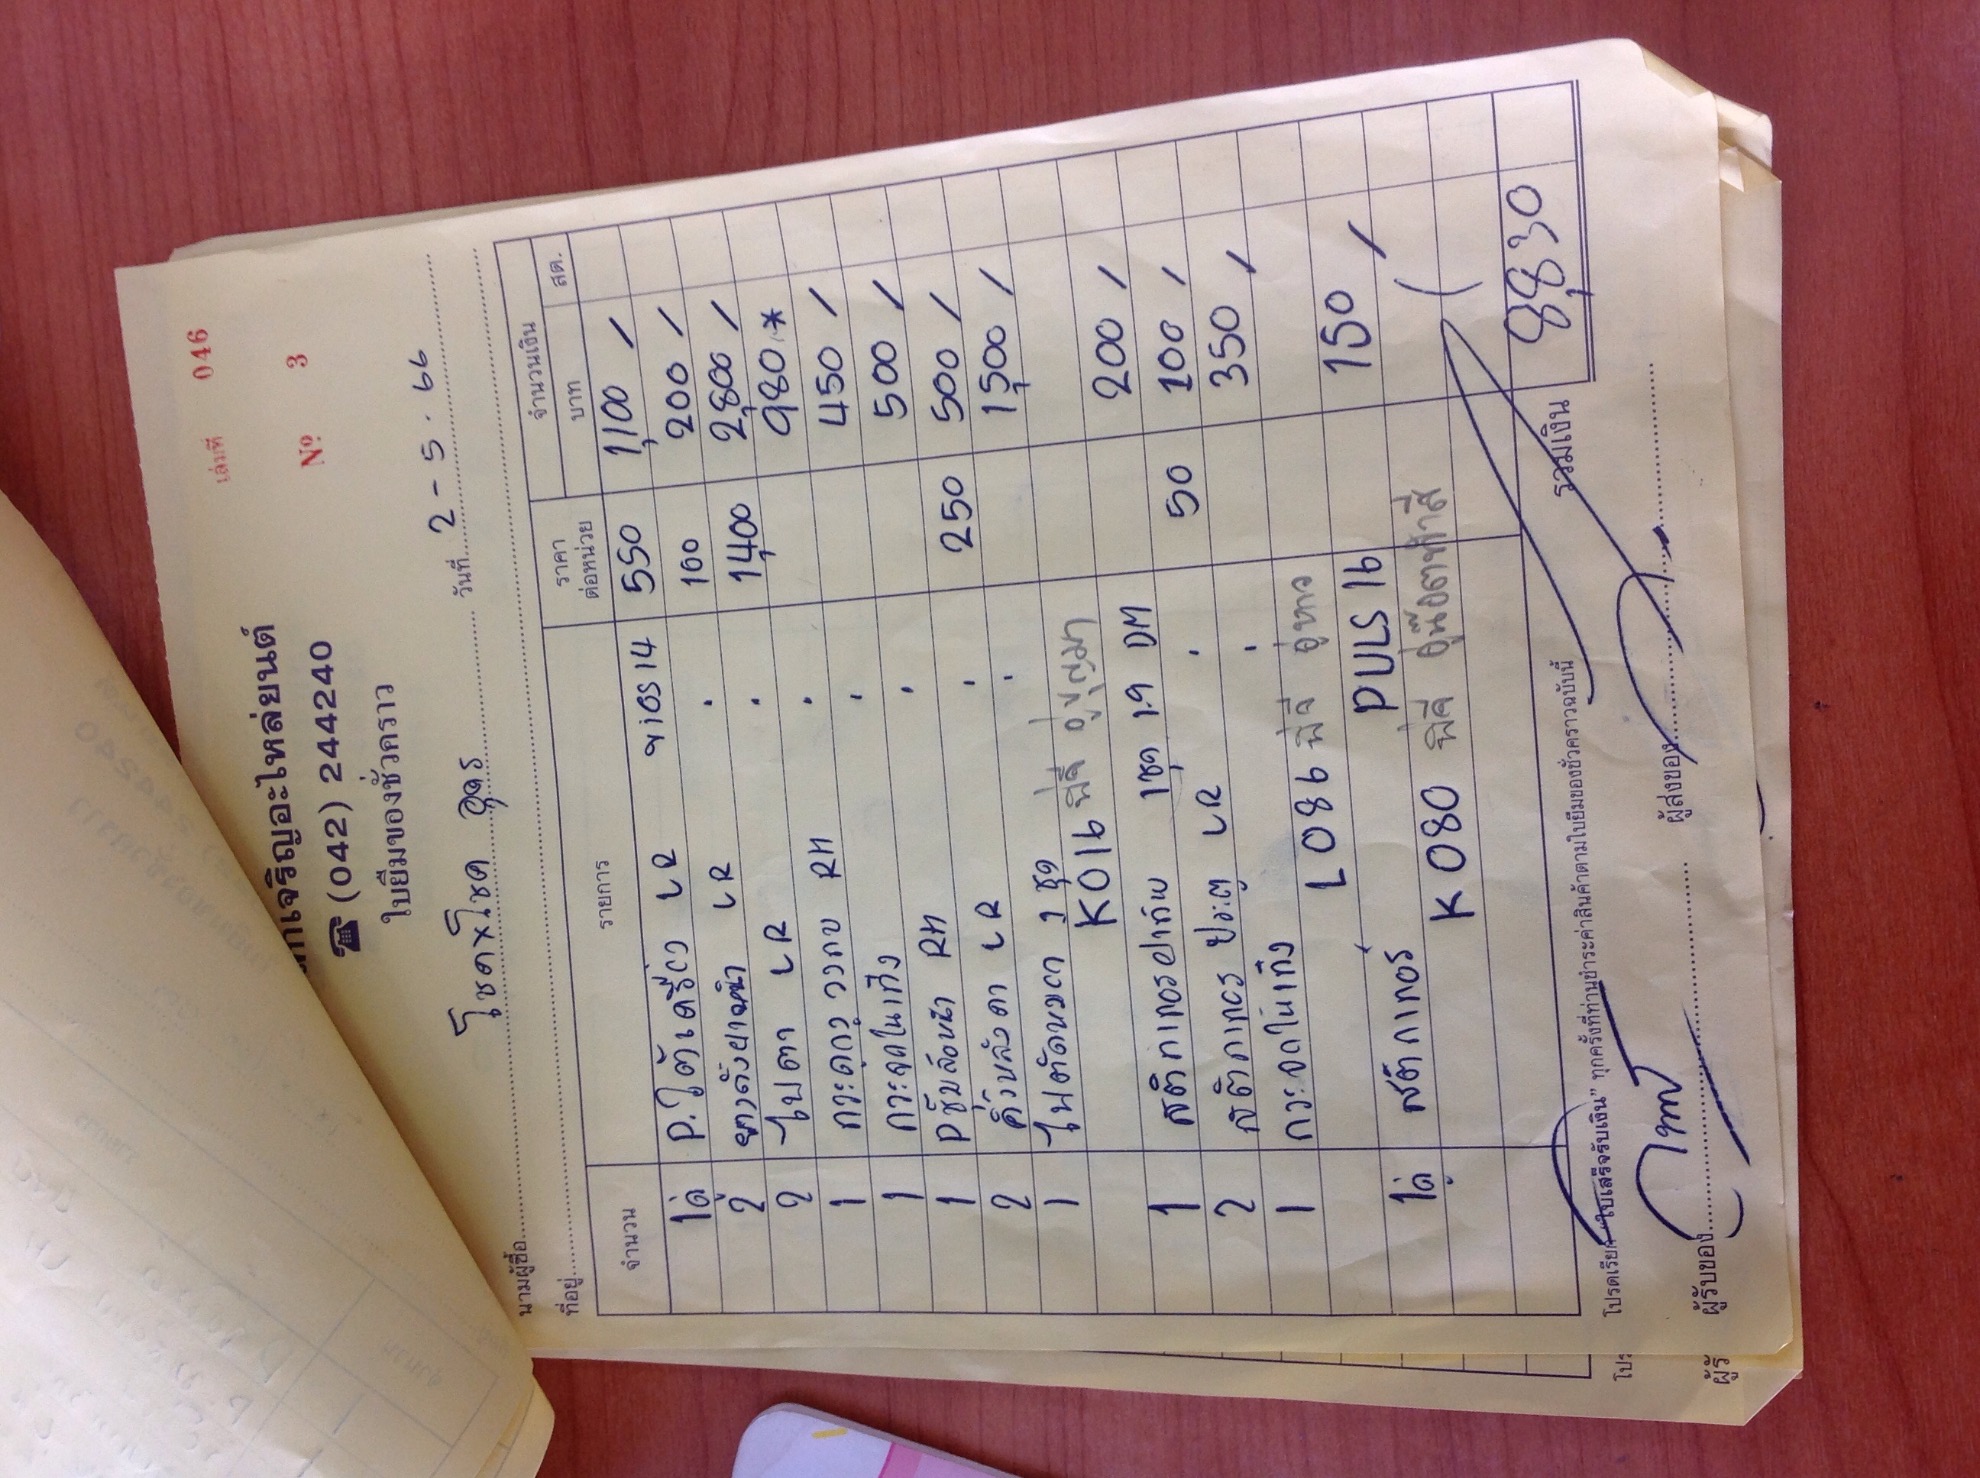 เล่มที่ 046
เจริญอะไหล่ยนต์
№ 3
☎ (042) 244240
ใบยืมของชั่วคราว
วันที่ 2-5-66
นามผู้ซื้อ โชคxโชค อุดร
ที่อยู่
จำนวน รายการ ราคาต่อหน่วย จำนวนเงิน
บาท สต.
1คู่ P.ใต้เครื่อง LR vios 14 550 1,100 /
2 LR 100 200 /
2 ไฟตา LR 1,400 2,800 /
1 RH 980 *
1 กระจกในเก๋ง 450 /
1 RH 500 /
2 คิ้วหลังคา LR 250 500 /
1 ไฟตัดหมอก 1 ชุด 1,500 /
K016 พี่จี
1 สติกเกอร์ 1ชุด 1.9 DM 200 /
2 สติกเกอร์ ประตู LR 50 100 /
1 กระจกในเก๋ง 350 /
L086 พี่จี
PULS 16 150 /
1คู่ สติกเกอร์
K080 พี่จี
รวมเงิน 8,830
โปรดเรียก "ใบเสร็จรับเงิน" ทุกครั้งที่ท่านชำระค่าสินค้าตามใบยืมของชั่วคราวฉบับนี้
ผู้รับของ ผู้ส่งของ